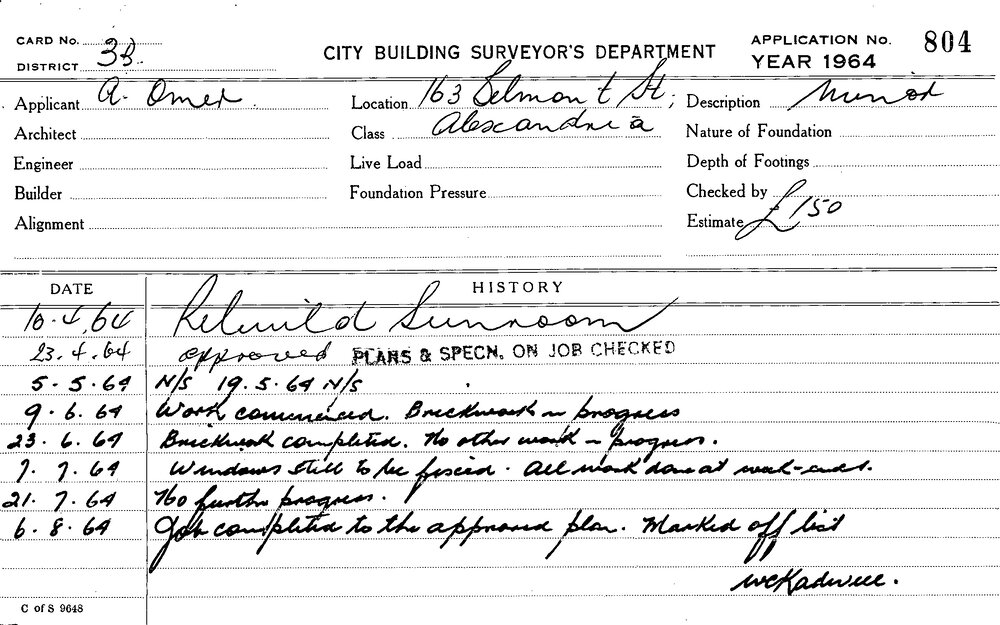 CARD No.
DISTRICT 3B.
CITY BUILDING SURVEYOR'S DEPARTMENT
APPLICATION No. 804
YEAR 1964
Applicant A. Omer
Location 163 Belmont St;
Description Minor
Architect
Class Alexandria
Nature of Foundation
Engineer
Live Load
Depth of Footings
Builder
Foundation Pressure
Checked by
Alignment
Estimate £150
DATE HISTORY
10.4.64 Rebuild Sunroom
23.4.64 approved PLANS & SPECN. ON JOB CHECKED
5.5.64 N/S 19.5.64 N/S
9.6.64 Work commenced. Brickwork in progress
23.6.64 Brickwork completed. No other work in progress.
7.7.64 Windows still to be fixed. All work done at week-ends.
21.7.64 No further progress.
6.8.64 Job completed to the approved plan. Marked off list
C of S 9648